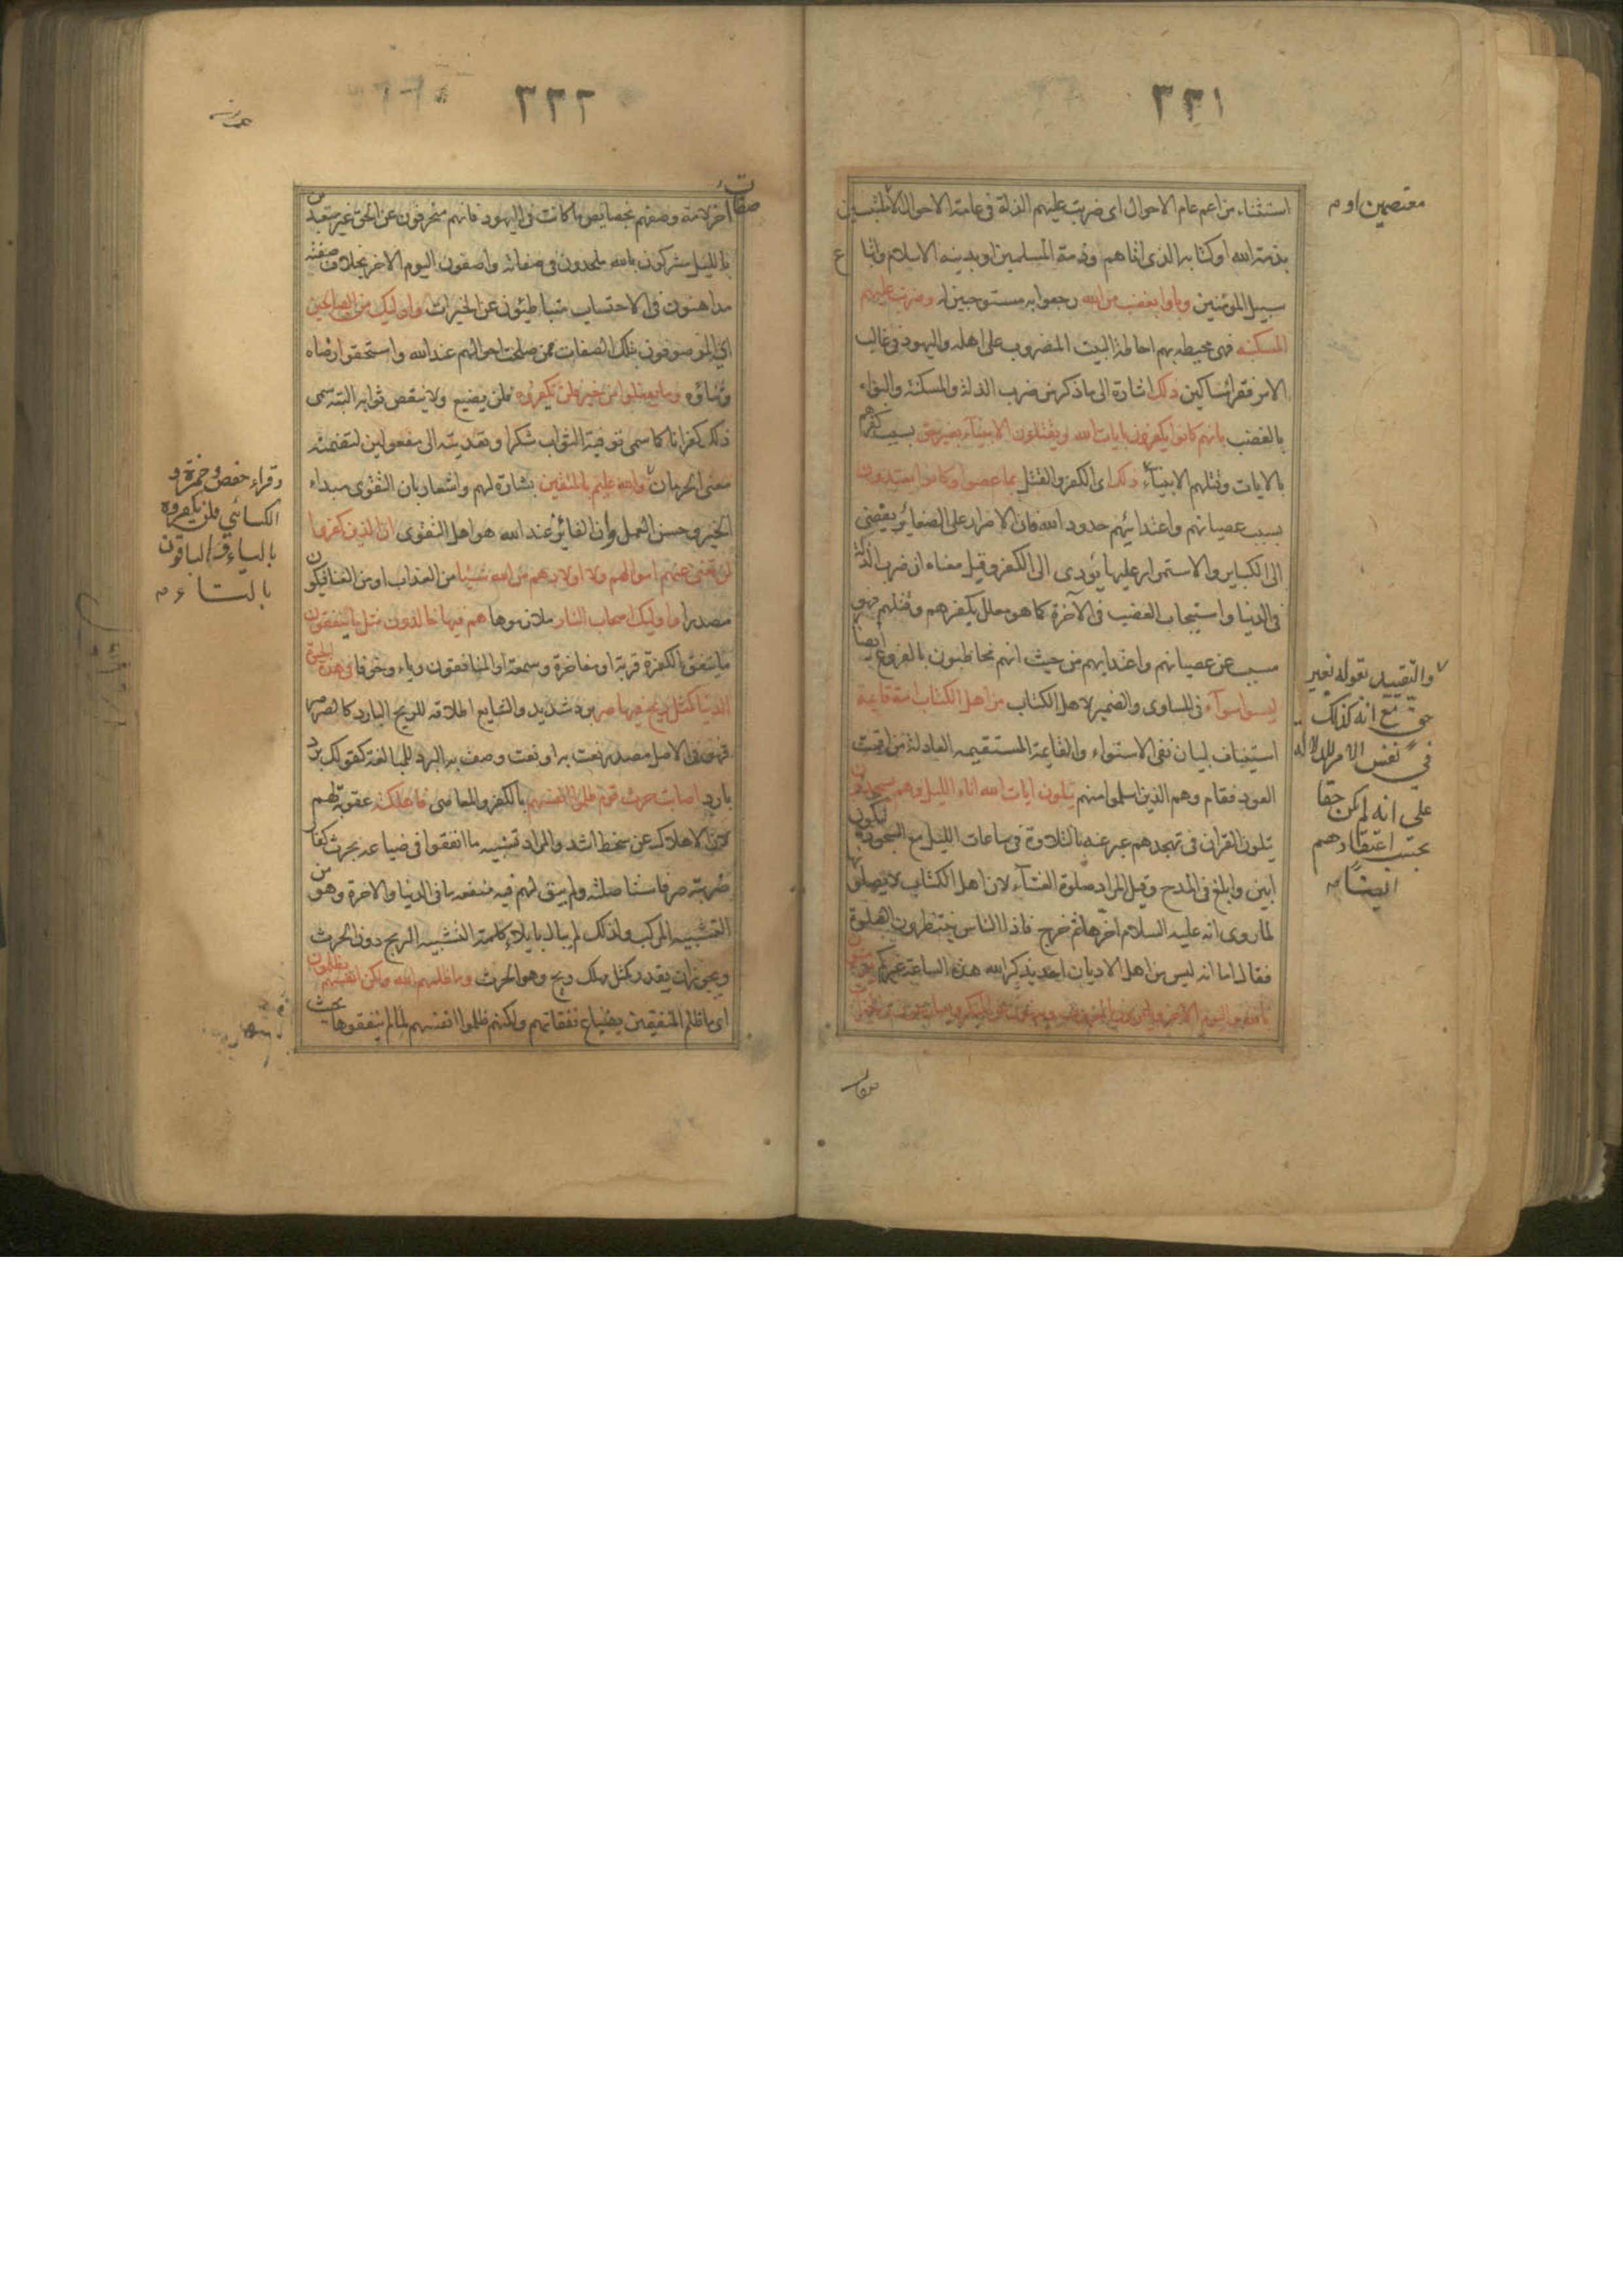 ٣٣١
استثناء من اعم عام الاحوال اى ضربت عليهم الذلة فى عامة الاحوال الا ملتبسين
معتصمين او
بذمة الله او كتابه الذى اتاهم وذمة المسلمين او بدينه الاسلام واتباع
سبيل المؤمنين وباؤا بغضب من الله رجعوا به مستوجبين له وضربت عليهم
المسكنة فهى محيطه بهم احاطة البيت المضروب على اهله واليهود فى غالب
الامر فقراء مساكين ذلك اشارة الى ما ذكر من ضرب الذلة والمسكنة والبواء
بالغضب بانهم كانوا يكفرون بايات الله ويقتلون الانبيآء بغير حق بسبب كفرهم
بالايات وقتلهم الانبيآء ذلك اى الكفر والقتل بما عصوا وكانوا يعتدون
بسبب عصيانهم واعتدائهم حدود الله فان الاصرار على الصغائر يفضى
الى الكباير والاستمرار عليها يؤدى الى الكفر وقيل معناه ان ضرب الذلة
فى الدنيا واستيجاب الغضب فى الآخرة كما هو معلل بكفرهم وقتلهم فهو
مسبب عن عصيانهم واعتدايهم من حيث انهم مخاطبون بالفروع ايضا
والتقييد بقوله بغير
حق مع انه كذلك
فى نفس الامر للدلالة
على انه لم يكن حقا
بحسب اعتقادهم
ايضا
ليسوا سوآء فى المساوى والضمير لاهل الكتاب من اهل الكتاب امة قايمة
استيناف لبيان نفى الاستواء والقايمة المستقيمه العادلة من اقمت
العود فقام وهم الذين اسلموا منهم يتلون ايات الله اناء الليل وهم يسجدون
يتلون القران فى تهجدهم عبر عنه بالتلاوة فى ساعات الليل مع السجود ليكون
ابين وابلغ فى المدح وقيل المراد صلوة العشآء لان اهل الكتاب لا يصلونها
لما روى انه عليه السلام اخرها ثم خرج فاذا الناس ينتظرون الصلوة
فقال اما انه ليس من اهل الاديان احد يذكر الله هذه الساعة غيركم يؤمنون
بالله واليوم الاخر ويامرون بالمعروف وينهون عن المنكر ويسارعون فى الخيرات
صفات
٣٣٢
صفات اخر لامة وصفهم بخصايص ما كانت فى اليهود فانهم منحرفون عن الحق غير متعبدين
بالليل مشركون بالله ملحدون فى صفاته واصفون اليوم الاخر بخلاف صفته
مداهنون فى الاحتساب متباطئون عن الخيرات واوليك من الصالحين
اى الموصوفون بتلك الصفات ممن صلحت احوالهم عند الله واستحقوا رضاه
وثناؤه وما يفعلوا من خير فلن يكفروه فلن يضيع ولا ينقص ثوابه البتة سمى
ذلك كفرانا كما سمى توفية الثواب شكرا وتعديته الى مفعولين لتضمنه
معنى الحرمان والله عليم بالمتقين بشارة لهم واشعار بان التقوى مبداء
وقراء حفص وحمزة و
الكسائي فلن يكفروه
بالياء والباقون
بالتاء
الخير وحسن العمل وان الفائز عند الله هو اهل التقوى ان الذين كفروا
لن تغنى عنهم اموالهم ولا اولادهم من الله شيئا من العذاب او من الغنا فيكون
مصدرا واوليك اصحاب النار ملازموها هم فيها خالدون مثل ما ينفقون
ما ينفق الكفرة قربة او مفاخرة وسمعة او المنافقون رياء وخوفا فى هذه الحيوة
الدنيا كمثل ريح فيها صر برد شديد والشايع اطلاقه للريح البارد كالصرصر
فهو فى الاصل مصدر نعت به او نعت وصف به البرد للمبالغة كقولك برد
بارد اصابت حرث قوم ظلموا انفسهم بالكفر والمعاصى فاهلكته عقوبة لهم
لان الاهلاك عن سخط اشد والمراد تشبيه ما انفقوا فى ضياعه بحرث كفار
ضربته صر فاستاصلته ولم يبق لهم فيه منفعة ما فى الدنيا والاخرة وهو من
التشبيه المركب ولذلك لم يبال بايلاء كلمة التشبيه الريح دون الحرث
ويجوز ان يقدر كمثل مهلك ريح وهو الحرث وما ظلمهم الله ولكن انفسهم يظلمون
اى ما ظلم المنفقين بضياع نفقاتهم ولكنهم ظلموا انفسهم لما لم ينفقوها بحيث